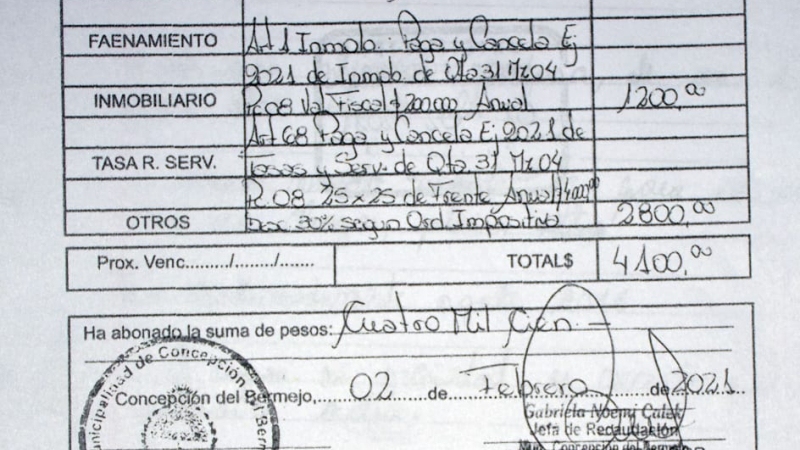 FAENAMIENTO Art 1 Inmob. Paga y Cancela Ej
2021 de Inmob. de Qta 31 Mz 04
INMOBILIARIO Pc. 08 Val Fiscal $200.000 Anual 1200,00
Art 68 Paga y Cancela Ej. 2021 de
TASA R. SERV. Tasas y Serv. de Qta 31 Mz 04
Pc. 08 25x25 de Frente Anual
OTROS Desc 30% según Ord. Impositiva 2800,00
Prox. Venc........./....../...... TOTAL$ 4100,00
Ha abonado la suma de pesos: Cuatro Mil Cien. —
Municipalidad de Concepción
Concepción del Bermejo, 02 de Febrero de 2021
Gabriela Noemi
Jefa de Recaudación
Mun. Concepción del Bermejo